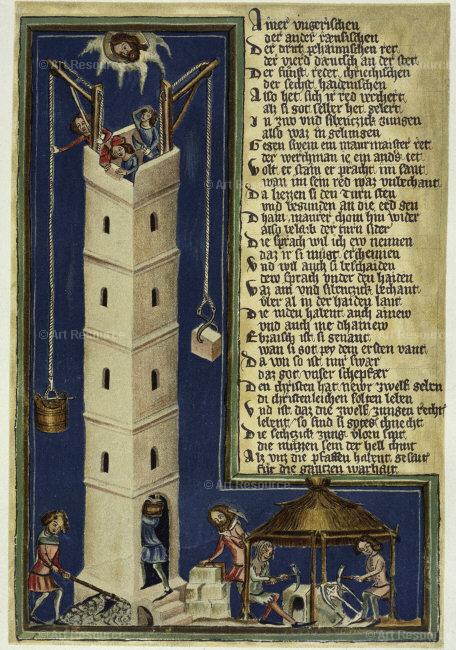 Ainer vngerischen
der ander ræusischen
Der dritt pehaimischen ret
der vierd dæutsch an der stet
Der funft reder chriechischen
der sechst haidenischen
Also het sich ir red verchert
als si got selber het gelert
In zwo vnd sibenzick zungen
also waz in gelungen
Gegen swem ein maurmaister ret
der werchman ie ein anders tet
Wolt er stain er pracht im sant
wan im sein red waz vnbechant
Da liezzen si den turn sten
vnd begunden an die erd gen
Dhain maurer chom hin wider
also belaib der turn sider
Die sprach wil ich ew nennen
daz ir si mugt erchennen
Vnd wil auch si beschaiden
dew sprach vnder den haiden
Waz ain vnd sibenzick bechant
vber al in der haiden lant
Die iuden habent auch ainew
vnd auch nie dhainew
Ebraisch ist si genant
wan si got pey dem ersten vant
Da von so ist mir swær
daz got vnser schephær
Den christen hat newr zwelf geben
di christenleichen solten leben
Vnd ist daz die zwelf zungen recht
lebent so sind si gotes chnecht
Die sechzick zung vloren sint
die muzzen sein der hell chint
Alz vns die pfaffen habent gesait
für die gantzen warhait
© Art Resource